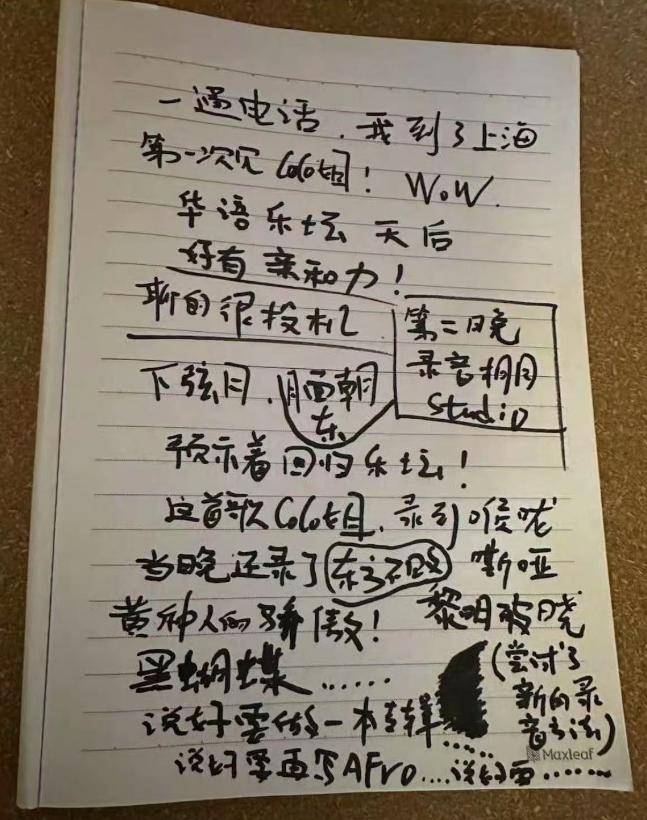 一通电话，我到了上海
第一次见CoCo姐！WoW.
华语乐坛 天后
好有亲和力！
聊的很投机
第二晚
录音棚
Studio
下弦月，月面朝
东
预示着回归乐坛！
这首歌CoCo姐，录到喉咙
嘶哑
当晚还录了东方不败
黄种人的骄傲！黎明破晓
黑蝴蝶......
(尝试了
新的录
音方法)
说好要做一本专辑
......
说好要再写AFro....说好要......
Maxleaf